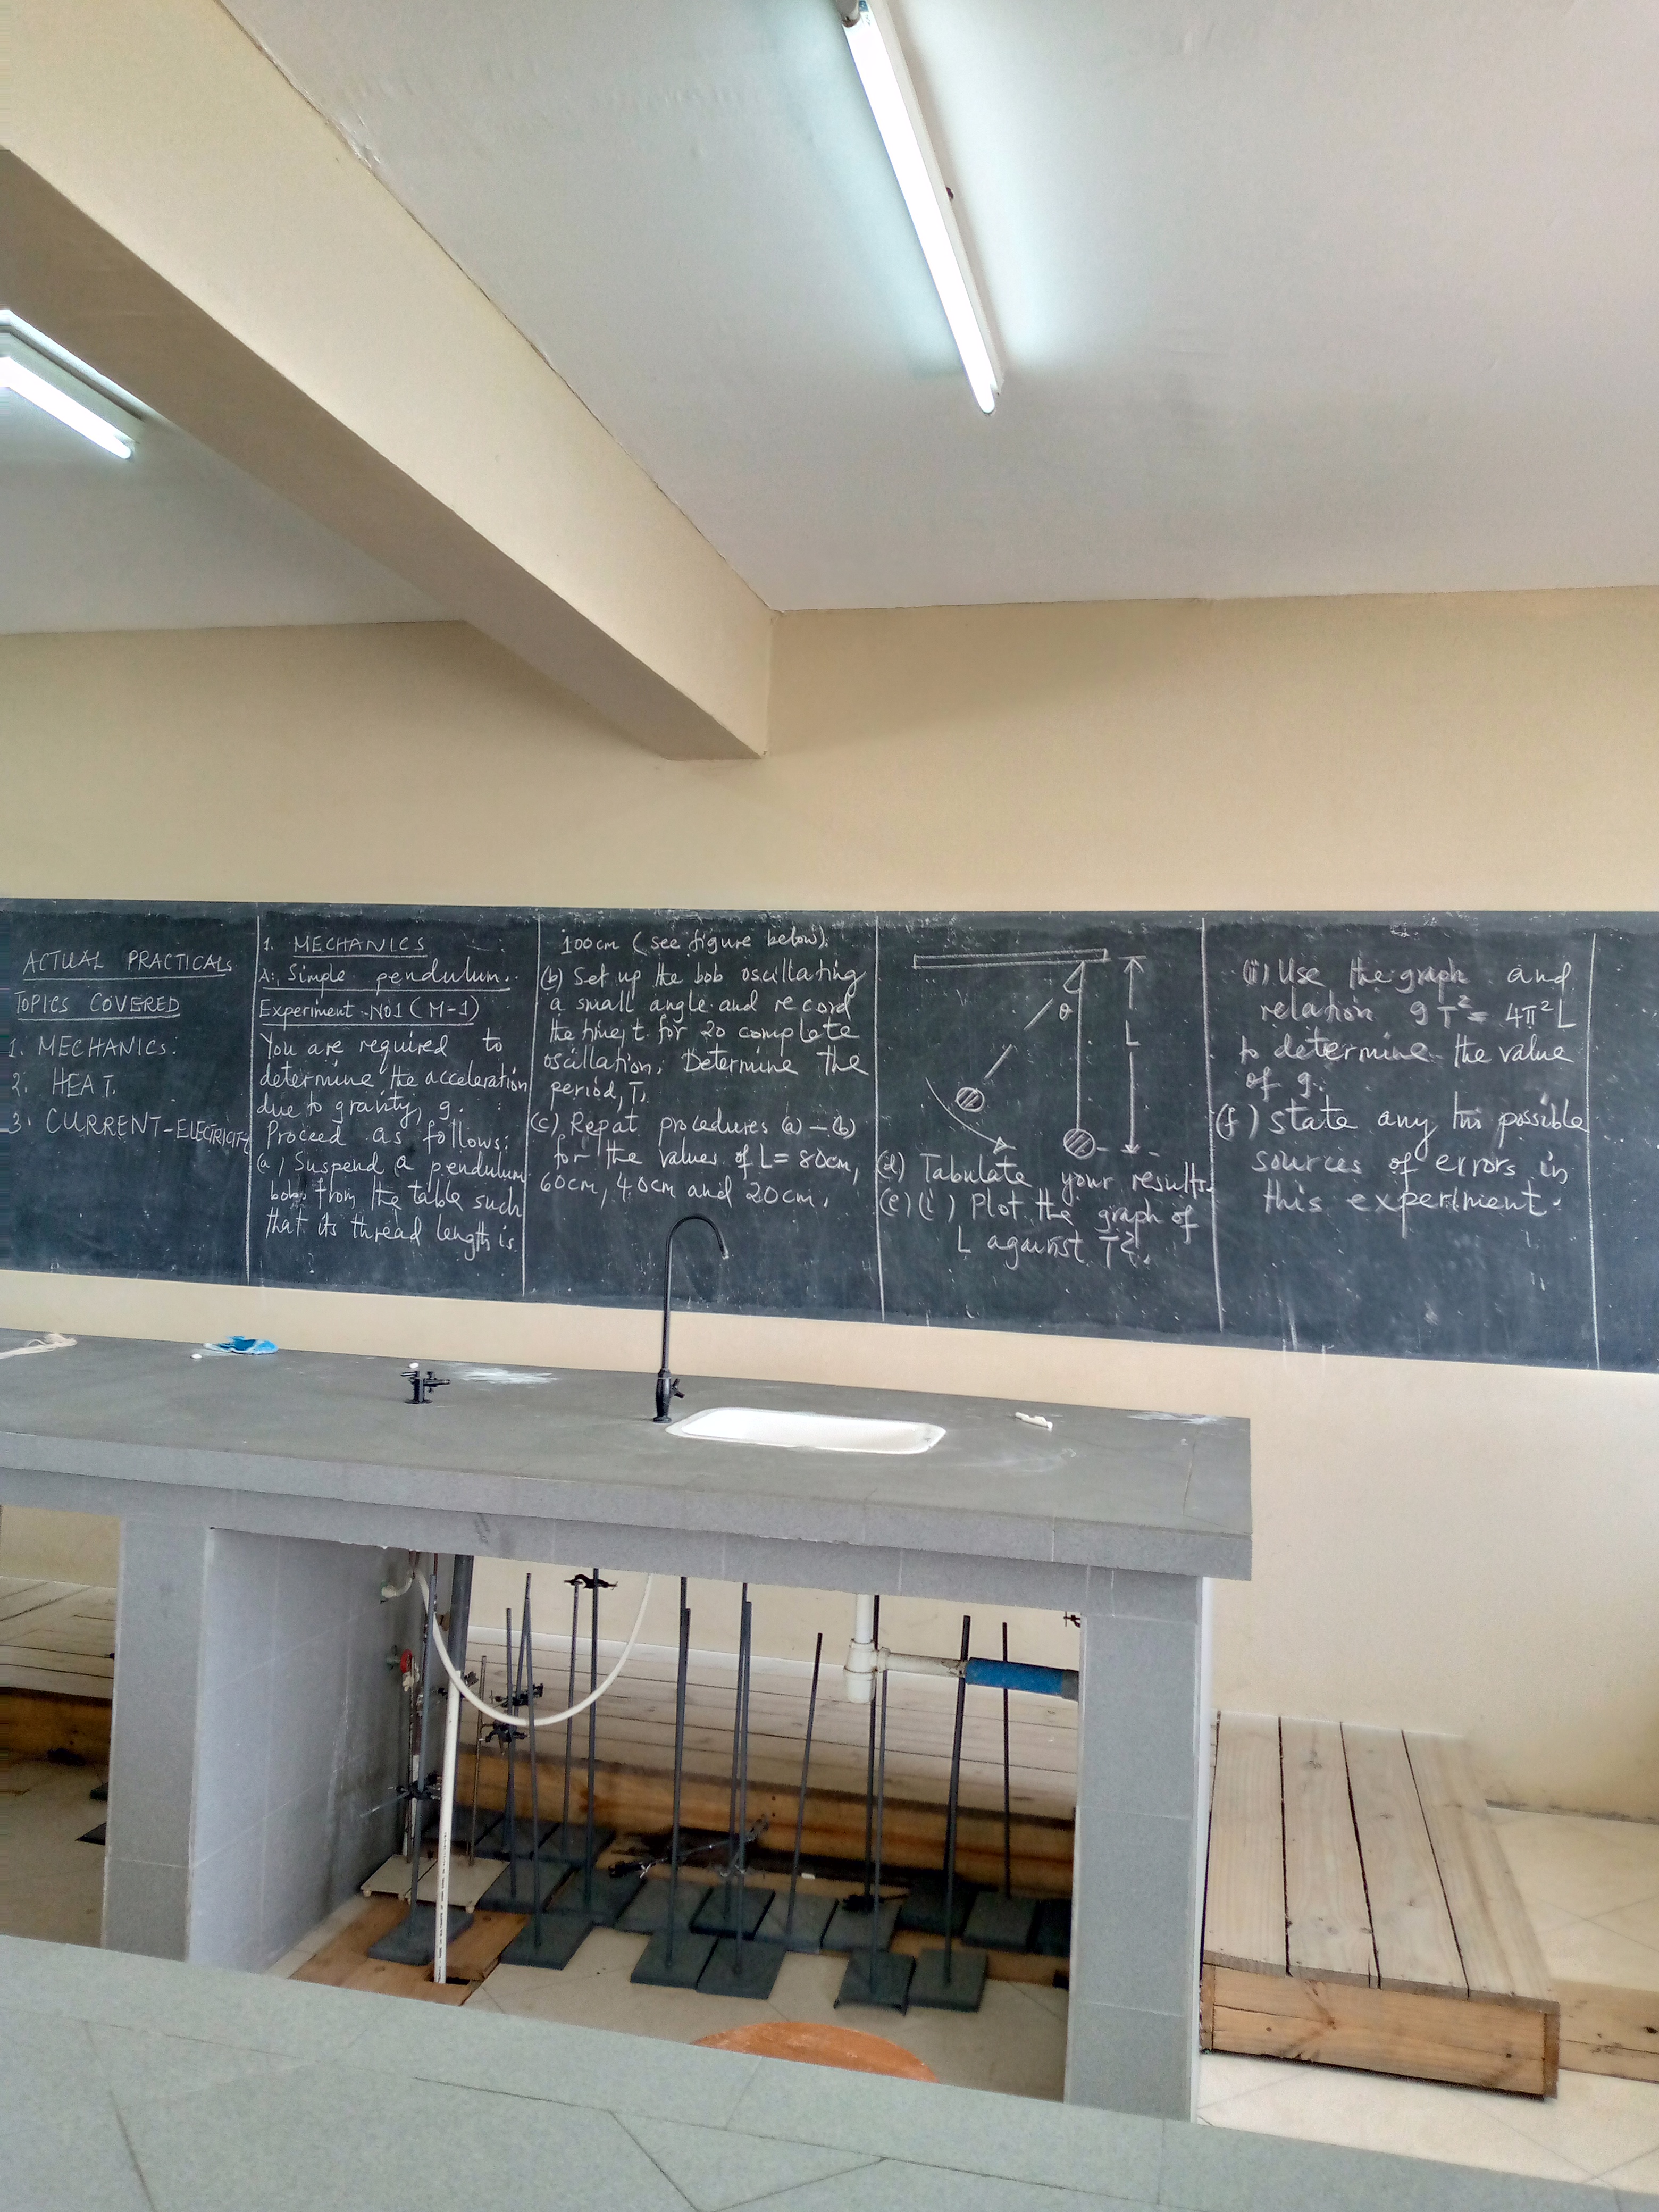 ACTUAL PRACTICALS
TOPICS COVERED
1. MECHANICS.
2. HEAT.
3. CURRENT-ELECTRICITY
1. MECHANICS
A: Simple pendulum.
Experiment NO1 (M-1)
You are required to
determine the acceleration
due to gravity, g.
Proceed as follows:
(a) Suspend a pendulum
bob from the table such
that its thread length is
100cm (see figure below).
(b) Set up the bob oscillating
a small angle and record
the time, t for 20 complete
oscillation, Determine the
period, T.
(c) Repat procedures (a) – (b)
for the values of L = 80cm,
60cm, 40cm and 20cm.
θ
L
(d) Tabulate your results.
(e) (i) Plot the graph of
L against T².
(ii) Use the graph and
relation gT² = 4π²L
to determine the value
of g.
(f) State any two possible
sources of errors in
this experiment.